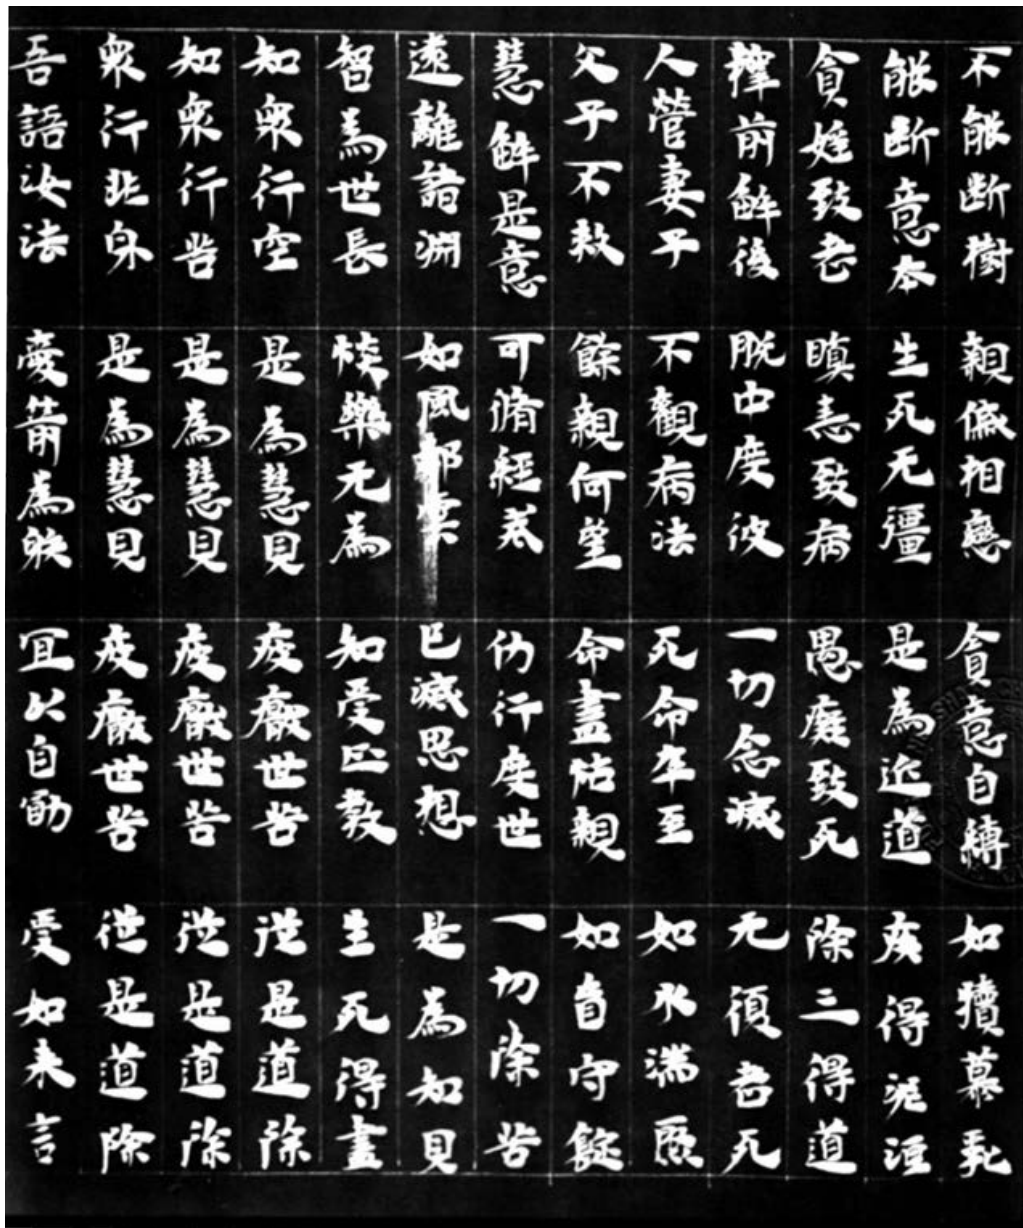 不能斷樹 親慼相戀 貪意自縛 如犢慕乳
能斷意本 生死无彊 是為近道 疾得泥洹
貪婬致老 瞋恚致病 愚癡致死 除三得道
釋前解後 脫中度彼 一切念滅 无復老死
人營妻子 不觀病法 死命卒至 如水湍
父子不救 餘親何望 命盡怙親 如盲守錠
慧解是意 可脩經戒 仂行度世 一切除苦
遠離諸淵 如風却雲 已滅思想 是為知見
智為世長 惔樂无為 知受正教 生死得盡
知衆行空 是為慧見 疲厭世苦 從是道除
知衆行苦 是為慧見 疲厭世苦 從是道除
衆行非身 是為慧見 疲厭世苦 從是道除
吾語汝法 愛箭為射 宜以自勖 受如来言